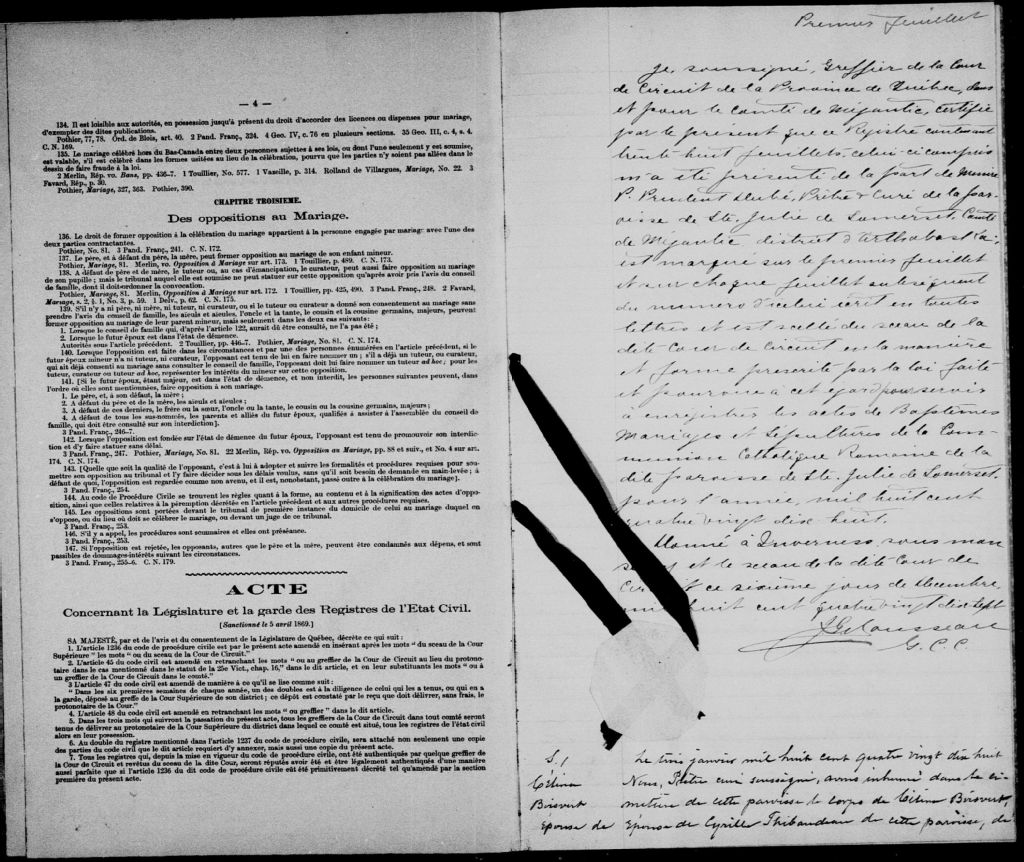 — 4 —
134. Il est loisible aux autorités, en possession jusqu'à présent du droit d'accorder des licences ou dispenses pour mariage,
d'exempter des dites publications.
Pothier, 77, 78. Ord. de Blois, art. 40. 2 Pand. Franç., 324. 4 Geo. IV, c. 76 en plusieurs sections. 35 Geo. III, c. 4, s. 4.
C. N. 169.
135. Le mariage célébré hors du Bas-Canada entre deux personnes sujettes à ses lois, ou dont l'une seulement y est soumise,
est valable, s'il est célébré dans les formes usitées au lieu de la célébration, pourvu que les parties n'y soient pas allées dans le
dessin de faire fraude à la loi.
2 Merlin, Rép. vo. Bans, pp. 436-7. 1 Touillier, No. 577. 1 Vazeille, p. 314. Rolland de Villargues, Mariage, No. 22. 3
Favard, Rép., p. 30.
Pothier, Mariage, 327, 363. Pothier, 390.
CHAPITRE TROISIEME.
Des oppositions au Mariage.
136. Le droit de former opposition à la célébration du mariage appartient à la personne engagée par mariage avec l'une des
deux parties contractantes.
Pothier, No. 81. 3 Pand. Franç., 241. C. N. 172.
137. Le père, et à défaut du père, la mère, peut former opposition au mariage de son enfant mineur.
Pothier, Mariage, 81. Merlin, vo. Opposition à Mariage sur art. 173. 1 Touillier, p. 489. C. N. 173.
138. A défaut de père et de mère, le tuteur ou, au cas d'émancipation, le curateur, peut aussi faire opposition au mariage
de son pupille; mais le tribunal auquel elle est soumise ne peut statuer sur cette opposition qu'après avoir pris l'avis du conseil
de famille, dont il doit ordonner la convocation.
Pothier, Mariage, 81. Merlin, Opposition à Mariage sur art. 172. 1 Touillier, pp. 425, 490. 3 Pand. Franç., 248. 2 Favard,
Mariage, s. 2, §. 1, No. 3, p. 59. 1 Delv., p. 62. C. N. 175.
139. S'il n'y a ni père, ni mère, ni tuteur, ni curateur, ou si le tuteur ou curateur a donné son consentement au mariage sans
prendre l'avis du conseil de famille, les aïeuls et aïeules, l'oncle et la tante, le cousin et la cousine germains, majeurs, peuvent
former opposition au mariage de leur parent mineur, mais seulement dans les deux cas suivants:
1. Lorsque le conseil de famille qui, d'après l'article 122, aurait dû être consulté, ne l'a pas été;
2. Lorsque le futur époux est dans l'état de démence.
Autorités sous l'article précédent. 2 Touillier, pp. 446-7. Pothier, Mariage, No. 81. C. N. 174.
140. Lorsque l'opposition est faite dans les circonstances et par une des personnes énumérées en l'article précédent, si le
futur époux mineur n'a ni tuteur, ni curateur, l'opposant est tenu de lui en faire nommer un; s'il a déjà un tuteur, ou curateur,
qui ait déjà consenti au mariage sans consulter le conseil de famille, l'opposant doit lui faire nommer un tuteur ad hoc; pour les
tuteur, curateur ou tuteur ad hoc, représenter les intérêts du mineur sur cette opposition.
141. [Si le futur époux, étant majeur, est dans l'état de démence, et non interdit, les personnes suivantes peuvent, dans
l'ordre où elles sont mentionnées, faire opposition à son mariage.
1. Le père, et, à son défaut, la mère;
2. A défaut du père et de la mère, les aïeuls et aïeules;
3. A défaut de ces derniers, le frère ou la sœur, l'oncle ou la tante, le cousin ou la cousine germains, majeurs;
4. A défaut de tous les sus-nommés, les parents et alliés du futur époux, qualifiés à assister à l'assemblée du conseil de
famille, qui doit être consulté sur son interdiction].
3 Pand. Franç., 246-7.
142. Lorsque l'opposition est fondée sur l'état de démence du futur époux, l'opposant est tenu de promouvoir son interdic-
tion et d'y faire statuer sans délai.
3 Pand. Franç., 247. Pothier, Mariage, No. 81. 22 Merlin, Rép. vo. Opposition au Mariage, pp. 88 et suiv., et No. 4 sur art.
174. C. N. 174.
143. [Quelque soit la qualité de l'opposant, c'est à lui à adopter et suivre les formalités et procédures requises pour sou-
mettre son opposition au tribunal et l'y faire décider sous les délais voulus, sans qu'il soit besoin de demande en main-levée; à
défaut de quoi, l'opposition est regardée comme non avenu, et il est, nonobstant, passé outre à la célébration du mariage].
3 Pand. Franç., 254.
144. Au code de Procédure Civile se trouvent les règles quant à la forme, au contenu et à la signification des actes d'oppo-
sition, ainsi que celles relatives à la péremption décrétée en l'article précédent et aux autres procédures requises.
145. Les oppositions sont portées devant le tribunal de première instance du domicile de celui au mariage duquel on
s'oppose, ou du lieu où doit se célébrer le mariage, ou devant un juge de ce tribunal.
3 Pand. Franç., 253.
146. S'il y a appel, les procédures sont sommaires et elles ont préséance.
3 Pand. Franç., 253.
147. Si l'opposition est rejetée, les opposants, autres que le père et la mère, peuvent être condamnés aux dépens, et sont
passibles de dommages-intérêts suivant les circonstances.
3 Pand. Franç., 255-6. C. N. 179.
ACTE
Concernant la Législature et la garde des Registres de l'Etat Civil.
[Sanctionné le 5 avril 1869.]
SA MAJESTÉ, par et de l'avis et du consentement de la Législature de Québec, décrète ce qui suit:
1. L'article 1236 du code de procédure civile est par le présent acte amendé en insérant après les mots "du sceau de la Cour
Supérieure" les mots "ou du sceau de la Cour de Circuit."
2. L'article 45 du code civil est amendé en retranchant les mots "ou au greffier de la Cour de Circuit au lieu du protono-
taire dans le cas mentionné dans le statut de la 25e Vict., chap. 16," dans le dit article, et en leur substituant les mots "ou à
un greffier de la Cour de Circuit dans le comté."
3 L'article 47 du code civil est amendé de manière à ce qu'il se lise comme suit:
"Dans les six premières semaines de chaque année, un des doubles est à la diligence de celui qui les a tenus, ou qui en a
la garde, déposé au greffe de la Cour Supérieure de son district; ce dépôt est constaté par le reçu que doit délivrer, sans frais, le
protonotaire de la Cour."
4. L'article 48 du code civil est amendé en retranchant les mots "ou greffier" dans le dit article.
5. Dans les trois mois qui suivront la passation du présent acte, tous les greffiers de la Cour de Circuit dans tout comté seront
tenus de délivrer au protonotaire de la Cour Supérieure du district dans lequel ce comté est situé, tous les registres de l'état civil
alors en leur possession.
6. Au double du registre mentionné dans l'article 1237 du code de procédure civile, sera attaché non seulement une copie
des parties du code civil que le dit article requiert d'y annexer, mais aussi une copie du présent acte.
7. Tous les registres qui, depuis la mise en vigueur du code de procédure civile, ont été authentiqués par quelque greffier de
la Cour de Circuit et revêtus du sceau de la dite Cour, seront réputés avoir été et être légalement authentiqués d'une manière
aussi parfaite que si l'article 1236 du dit code de procédure civile eût été primitivement décrété tel qu'amendé par la section
première du présent acte.
Premier feuillet
Je, soussigné, Greffier de la Cour
de Circuit de la Province de Québec, dans
et pour le Comté de Mégantic, certifie
par le présent que ce Registre contenant
trente huit feuillets, celui-ci compris
m'a été présenté de la part de Messire
P. Prudent Dubé, Prêtre & Curé de la pa-
roisse de Ste. Julie de Somerset, Comté
de Mégantic district d'Arthabaska,
est marqué sur le premier feuillet
et sur chaque feuillet subséquent
du numéro d'icelui écrit en toutes
lettres et est scellé du sceau de la
dite Cour de Circuit en la manière
et forme prescrite par la loi faite
et pourvue à cet égard pour servir
à enregistrer les actes de Baptêmes
Mariages et Sépultures de la Com-
munion Catholique Romaine de la
dite paroisse de Ste. Julie de Somerset
pour l'année mil huit cent
quatre vingt dix huit.
Donné à Inverness, sous mon
et le sceau de la dite Cour de
ce sixième jour de Decembre
mil huit cent quatre vingt dix sept
Rousseau
G. C. C.
S. 1
Célina
Boisvert
Épouse de
Le trois janvier mil huit cent quatre vingt dix huit
Nous, Prêtre curé soussigné, avons inhumé dans le ci-
metière de cette paroisse le corps de Célina Boisvert,
Épouse de Cyrille Thibaudeau de cette paroisse, dé-